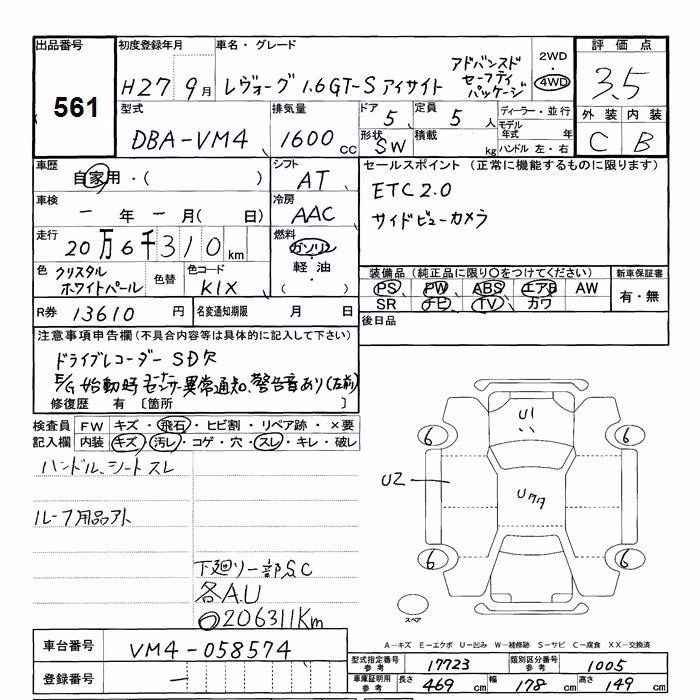 出品番号 初度登録年月 車名・グレード 2WD 評価点
561 H27 9月 レヴォーグ 1.6GT-S アイサイト アドバンスドセーフティパッケージ 4WD 3.5
型式 排気量 ドア 定員 ディーラー・並行 外装 内装
DBA-VM4 1600cc 5 5人 モデル年式 年 C B
形状 SW 積載 kg ハンドル 左・右
車歴 自家用・( ) シフト AT セールスポイント(正常に機能するものに限ります)
車検 一年一月(日) 冷房 AAC ETC2.0
サイドビューカメラ
走行 20万6千310km 燃料 ガソリン・軽油・
色 クリスタルホワイトパール 色替 色コード K1X ( )
装備品(純品に限り○をつけてください) 新車保証書
PS PW ABS エアB AW 有・無
SR ナビ TV カワ
R券 13610円 名変通知期限 月 日 後日品
注意事項申告欄(不具合内容等は具体的に記入して下さい)
ドライブレコーダー SD欠
E/G始動時コーナーセンサー異常通知、警告音あり(左前)
修復歴 有 [箇所 ]
検査員 FW キズ・飛石・ヒビ割・リペア跡・×要
記入欄 内装 キズ・汚レ・コゲ・穴・スレ・キレ・破レ
ハンドル、シートスレ
ルーフ用品アト
下廻リ一部S.C
各A.U
206311Km
U1
6 6
U2
Uクタ
6 6
スペア
A−キズ E−エクボ U−凹み W−補修跡 S−サビ C−腐食 XX−交換済
車台番号 VM4-058574
登録番号 一
型式指定番号参考 17723 類別区分番号参考 1005
車庫証明用参考 長さ 469cm 幅 178cm 高さ 149cm